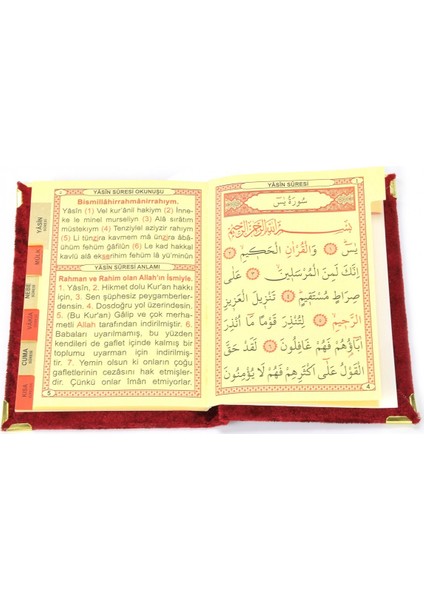 YÂSİN SÛRESİ OKUNUŞU
Bismillâhirrahmânirrahıym.
Yâsîn (1) Vel kur'ânil hakiym (2) İnne-
ke le minel murseliyn (3) Alâ sırâtım
müstekıym (4) Tenziylel aziyzir rahıym
(5) Li tünzira kavmem mâ ünzira âbâ-
ühüm fehüm ğâfilûn (6) Le kad hakkal
kavlü alâ eksarihim fehüm lâ yü'minûn
YÂSÎN SÛRESİ ANLAMI
Rahman ve Rahim olan Allah'ın İsmiyle.
1. Yâsîn, 2. Hikmet dolu Kur'an hakkı
için, 3. Sen şüphesiz peygamberler-
densin. 4. Dosdoğru yol üzeresin.
5. (Bu Kur'an) Gâlip ve çok merha-
metli Allah tarafından indirilmiştir. 6.
Babaları uyarılmamış, bu yüzden
kendileri de gaflet içinde kalmış bir
toplumu uyarman için indirilmiş-
tir. 7. Yemin olsun ki onların çoğu
gafletlerinin cezasını hak etmişler-
dir. Çünkü onlar îmân etmiyorlar.
5
YÂSİN
MÜLK
NEBE
VAKIA
CUMA
KISA
YÂSİN SÛRESİ
سُورَةُ يٰسٓ
بِسْمِ اللّٰهِ الرَّحْمٰنِ الرَّحِيمِ
يٰسٓ ﴿١﴾ وَالْقُرْاٰنِ الْحَكِيمِ ﴿٢﴾
اِنَّكَ لَمِنَ الْمُرْسَلِينَ ﴿٣﴾ عَلٰى
صِرَاطٍ مُسْتَقِيمٍ ﴿٤﴾ تَنْزِيلَ الْعَزِيزِ
الرَّحِيمِ ﴿٥﴾ لِتُنْذِرَ قَوْمًا مَٓا اُنْذِرَ
اٰبَٓاؤُهُمْ فَهُمْ غَافِلُونَ ﴿٦﴾ لَقَدْ حَقَّ
الْقَوْلُ عَلٰٓى اَكْثَرِهِمْ فَهُمْ لَا يُؤْمِنُونَ
4